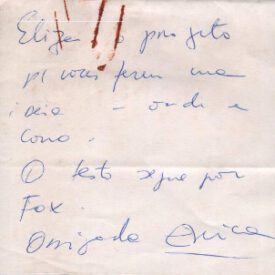 Elizer o projeto
p/ vocês terem uma
ideia - onde e
como.
O texto segue por
Fax.
Obrigada Erica